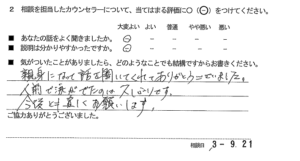 2 相談を担当したカウンセラーについて、当てはまる評価に○（⊖）をつけてください。
大変よい よい 普通 やや悪い 悪い
■ あなたの話をよく聞きましたか。
■ 説明は分かりやすかったですか。
■ 気がついたことがありましたら、どのようなことでも結構ですからお書きください。
親身になって話を聞いてくれてありがとうございました。
人前で涙がでたのは久しぶりです。
今後とも宜しくお願いします。
ご協力ありがとうございました。
相談日 3-9.21